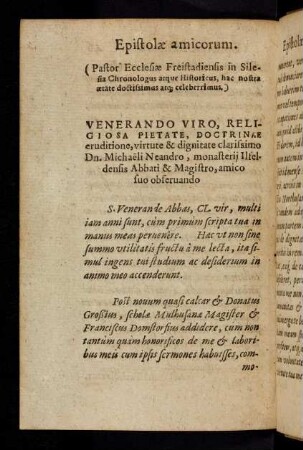 Epistolæ amicorum.
(Pastor Ecclesiæ Freistadiensis in Sile-
sia Chronologus atque Historicus, hac nostra
ætate doctissimus atq; celeberrimus.)
VENERANDO VIRO, RELI-
GIOSA PIETATE, DOCTRINÆ
eruditione, virtute & dignitate clarissimo
Dn. Michaëli Neandro, monasterij Ilfel-
densis Abbati & Magistro, amico
suo obseruando
S. Venerande Abbas, CL. vir, multi
iam anni sunt, cùm primùm scripta tua in
manus meas peruenêre. Hæc vt non sine
summo vtilitatis fructu à me lecta, ita si-
mul ingens tui studium ac desiderium in
animo meo accenderunt.
Post nouum quasi calcar & Donatus
Grossius, scholæ Mulhusanæ Magister &
Franciscus Domstorfius addidere, cum non
tantùm quàm honorificos de me & labori-
bus meis cum ipsis sermones habuisses, com-
mo-